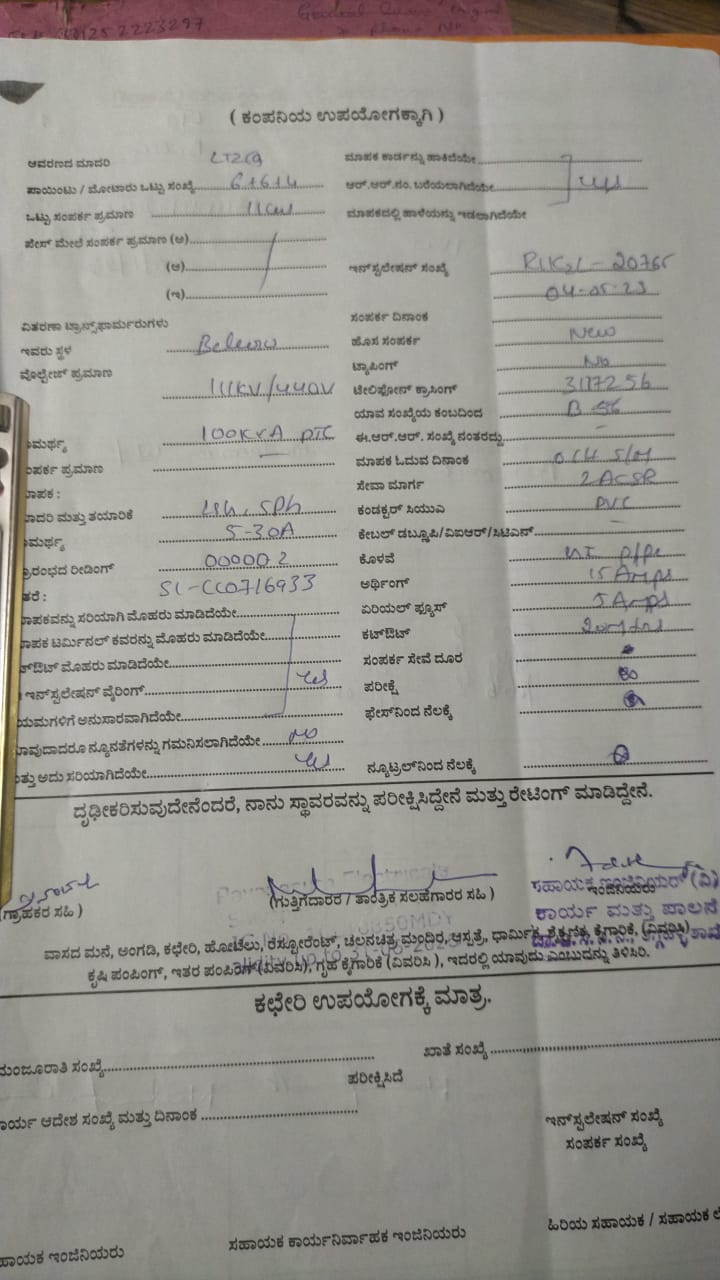 2223297
( ಕಂಪನಿಯ ಉಪಯೋಗಕ್ಕಾಗಿ )
ಆವರಣದ ಮಾದರಿ LT2(a) ಮಾಪಕ ಕಾರ್ಡನ್ನು ಹಾಕಿದೆಯೇ
ಪಾಯಿಂಟು / ಮೋಟಾರು ಒಟ್ಟು ಸಂಖ್ಯೆ 6L6L4 ಆರ್.ಆರ್.ನಂ. ಬರೆಯಲಾಗಿದೆಯೇ yes
ಒಟ್ಟು ಸಂಪರ್ಕ ಪ್ರಮಾಣ 1KW ಮಾಪಕದಲ್ಲಿ ಹಾಳೆಯನ್ನು ಇಡಲಾಗಿದೆಯೇ
ಫೇಸ್ ಮೇಲೆ ಸಂಪರ್ಕ ಪ್ರಮಾಣ (ಅ)
(ಆ) ಇನ್‌ಸ್ಟಲೇಷನ್ ಸಂಖ್ಯೆ
(ಇ) 04-05-23
ವಿತರಣಾ ಟ್ರಾನ್ಸ್‌ಫಾರ್ಮರುಗಳು ಸಂಪರ್ಕ ದಿನಾಂಕ
ಇವರು ಸ್ಥಳ ಹೊಸ ಸಂಪರ್ಕ New
ವೊಲ್ಟೇಜ್ ಪ್ರಮಾಣ 11KV/440V ಟ್ಯಾಪಿಂಗ್ No
ಟೆಲಿಫೋನ್ ಕ್ರಾಸಿಂಗ್ 3117256
ಯಾವ ಸಂಖ್ಯೆಯ ಕಂಬದಿಂದ B 56
ಾಮರ್ಥ್ಯ 100KVA DTC ಈ.ಆರ್.ಆರ್. ಸಂಖ್ಯೆ ನಂತರದ್ದು
ಂಪರ್ಕ ಪ್ರಮಾಣ ಮಾಪಕ ಓದುವ ದಿನಾಂಕ
ಾಪಕ : ಸೇವಾ ಮಾರ್ಗ 2ACSR
ಾದರಿ ಮತ್ತು ತಯಾರಿಕೆ ಕಂಡಕ್ಟರ್ ಸಿಯುಎ PVC
ಾಮರ್ಥ್ಯ 5-30A ಕೇಬಲ್ ಡಬ್ಲ್ಯೂಪಿ/ವಿಐಆರ್/ಸಿಟಿಎನ್
್ರಾರಂಭದ ರೀಡಿಂಗ್ 000002 ಕೊಳವೆ pipe
ತರೆ : SL-CC0716933 ಅರ್ಥಿಂಗ್ 15 Amps
ಾಪಕವನ್ನು ಸರಿಯಾಗಿ ಮೊಹರು ಮಾಡಿದೆಯೇ ಏರಿಯಲ್ ಫ್ಯೂಸ್ 5 Amps
ಾಪಕ ಟರ್ಮಿನಲ್ ಕವರನ್ನು ಮೊಹರು ಮಾಡಿದೆಯೇ ಕಟ್‌ಔಟ್
ಟ್‌ಔಟ್ ಮೊಹರು ಮಾಡಿದೆಯೇ ಸಂಪರ್ಕ ಸೇವೆ ದೂರ
ಇನ್‌ಸ್ಟಲೇಷನ್ ವೈರಿಂಗ್ Yes ಪರೀಕ್ಷೆ
ಯಮಗಳಿಗೆ ಅನುಸಾರವಾಗಿದೆಯೇ ಫೇಸ್‌ನಿಂದ ನೆಲಕ್ಕೆ
ಾವುದಾದರೂ ನ್ಯೂನತೆಗಳನ್ನು ಗಮನಿಸಲಾಗಿದೆಯೇ No
ತ್ತು ಅದು ಸರಿಯಾಗಿದೆಯೇ Yes ನ್ಯೂಟ್ರಲ್‌ನಿಂದ ನೆಲಕ್ಕೆ
ದೃಢೀಕರಿಸುವುದೇನೆಂದರೆ, ನಾನು ಸ್ಥಾವರವನ್ನು ಪರೀಕ್ಷಿಸಿದ್ದೇನೆ ಮತ್ತು ರೇಟಿಂಗ್ ಮಾಡಿದ್ದೇನೆ.
(ಗ್ರಾಹಕರ ಸಹಿ ) (ಗುತ್ತಿಗೆದಾರರ / ತಾಂತ್ರಿಕ ಸಲಹೆಗಾರರ ಸಹಿ ) ಇಂಜಿನಿಯರು
ಸಹಾಯಕ ಇಂಜಿನಿಯರ್ (ವಿ)
ಕಾರ್ಯ ಮತ್ತು ಪಾಲನೆ
ವಾಸದ ಮನೆ, ಅಂಗಡಿ, ಕಛೇರಿ, ಹೋಟೆಲು, ರೆಸ್ಟೋರೆಂಟ್, ಚಲನಚಿತ್ರ ಮಂದಿರ, ಆಸ್ಪತ್ರೆ, ಧಾರ್ಮಿಕ, ಶೈಕ್ಷಣಿಕ, ಕೈಗಾರಿಕೆ, (ವಿವರಿಸಿ)
ಕೃಷಿ ಪಂಪಿಂಗ್, ಇತರ ಪಂಪಿಂಗ್ (ವಿವರಿಸಿ), ಗೃಹ ಕೈಗಾರಿಕೆ (ವಿವರಿಸಿ ), ಇದರಲ್ಲಿ ಯಾವುದು ಎಂಬುದನ್ನು ತಿಳಿಸಿರಿ.
ಕಛೇರಿ ಉಪಯೋಗಕ್ಕೆ ಮಾತ್ರ.
ಮಂಜೂರಾತಿ ಸಂಖ್ಯೆ ಖಾತೆ ಸಂಖ್ಯೆ
ಪರೀಕ್ಷಿಸಿದೆ
ಾರ್ಯ ಆದೇಶ ಸಂಖ್ಯೆ ಮತ್ತು ದಿನಾಂಕ ಇನ್‌ಸ್ಟಲೇಷನ್ ಸಂಖ್ಯೆ
ಸಂಪರ್ಕ ಸಂಖ್ಯೆ
ಹಾಯಕ ಇಂಜಿನಿಯರು ಸಹಾಯಕ ಕಾರ್ಯನಿರ್ವಾಹಕ ಇಂಜಿನಿಯರು ಹಿರಿಯ ಸಹಾಯಕ / ಸಹಾಯಕ ಲೆ